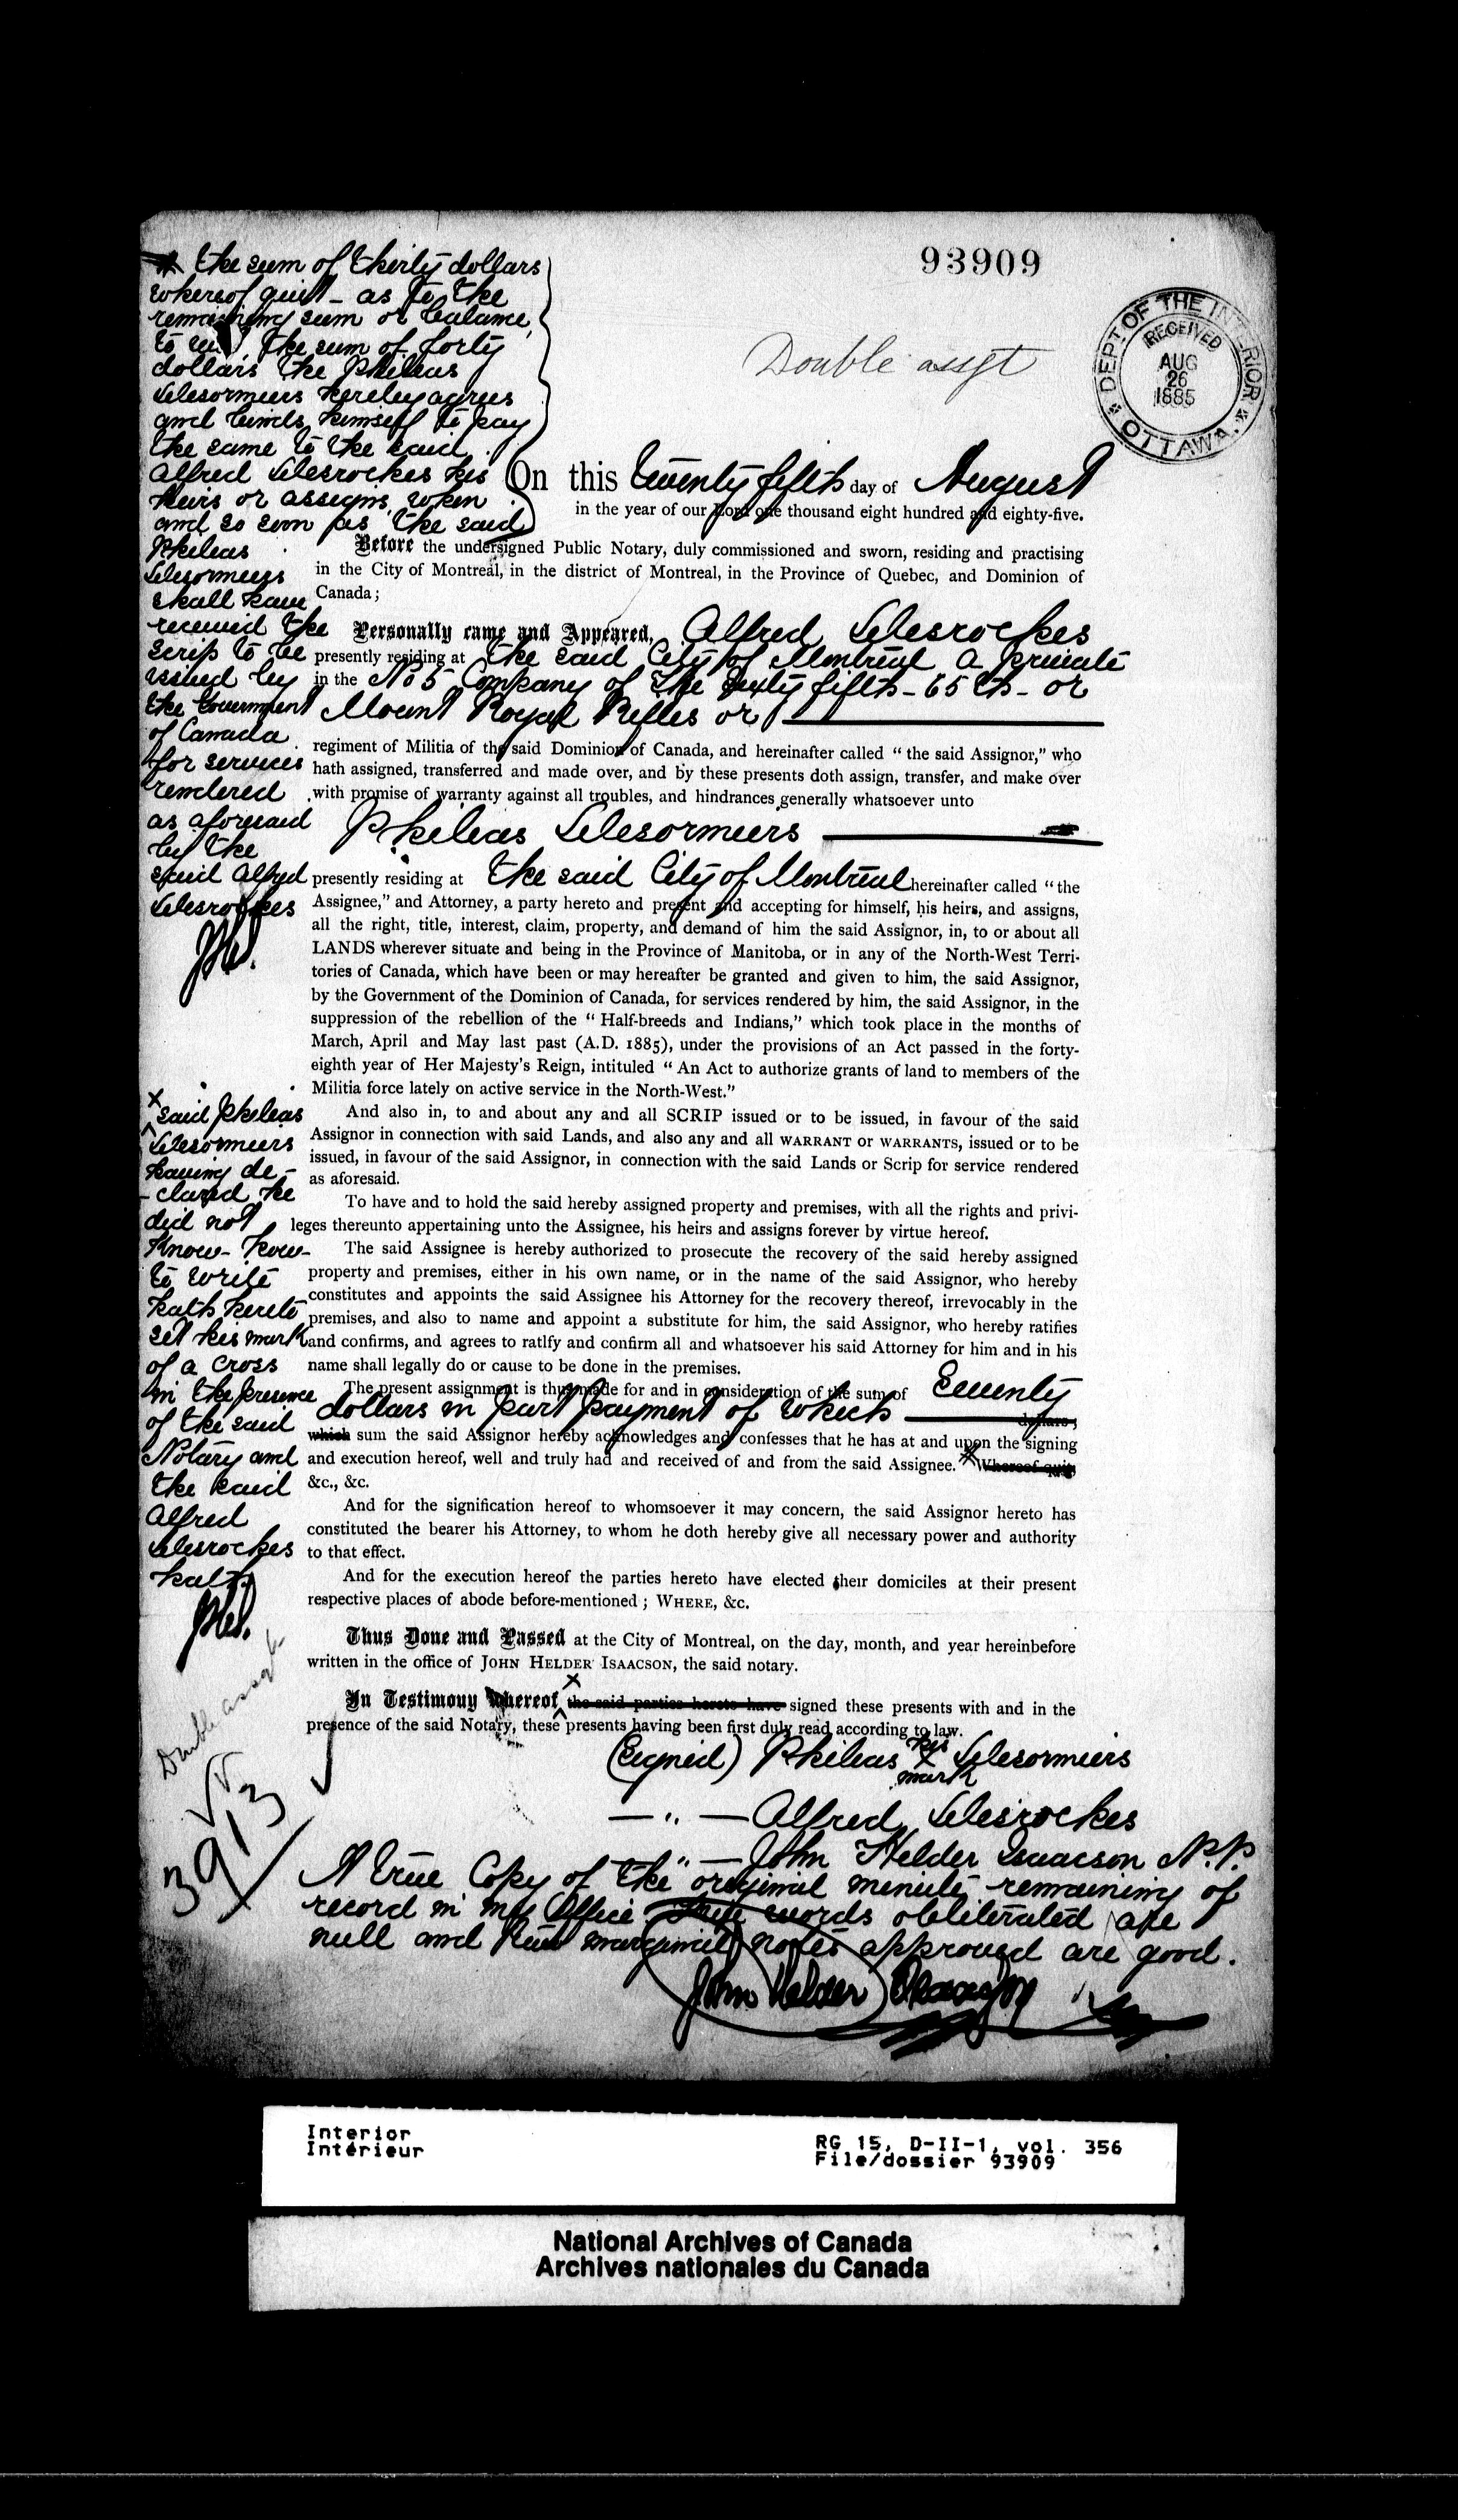 93909
Double assgt
DEPT. OF THE INTERIOR
RECEIVED
AUG
26
1885
OTTAWA.
the sum of thirty dollars
whereof quit - as to the
remaining sum or balance,
to wit the sum of forty
dollars the Phileas
Desormiers hereby agrees
and binds himself to pay
the same to the said
Alfred Desroches his
heirs or assigns, when
and so soon as the said
Phileas
Desormiers
shall have
received the
scrip to be
issued by
the Government
of Canada
for services
rendered
as aforesaid
by the
said Alfred
Desroches
On this Twenty fifth day of August
in the year of our Lord one thousand eight hundred and eighty-five.
Before the undersigned Public Notary, duly commissioned and sworn, residing and practising
in the City of Montreal, in the district of Montreal, in the Province of Quebec, and Dominion of
Canada;
Personally came and Appeared, Alfred Desroches
presently residing at the said City of Montreal a private
in the No 5 Company of the Sixty fifth - 65th - or
Mount Royal Rifles or
regiment of Militia of the said Dominion of Canada, and hereinafter called "the said Assignor," who
hath assigned, transferred and made over, and by these presents doth assign, transfer, and make over
with promise of warranty against all troubles, and hindrances generally whatsoever unto
Phileas Desormiers
presently residing at the said City of Montreal hereinafter called "the
Assignee," and Attorney, a party hereto and present and accepting for himself, his heirs, and assigns,
all the right, title, interest, claim, property, and demand of him the said Assignor, in, to or about all
LANDS wherever situate and being in the Province of Manitoba, or in any of the North-West Terri-
tories of Canada, which have been or may hereafter be granted and given to him, the said Assignor,
by the Government of the Dominion of Canada, for services rendered by him, the said Assignor, in the
suppression of the rebellion of the "Half-breeds and Indians," which took place in the months of
March, April and May last past (A.D. 1885), under the provisions of an Act passed in the forty-
eighth year of Her Majesty's Reign, intituled "An Act to authorize grants of land to members of the
Militia force lately on active service in the North-West."
And also in, to and about any and all SCRIP issued or to be issued, in favour of the said
Assignor in connection with said Lands, and also any and all WARRANT or WARRANTS, issued or to be
issued, in favour of the said Assignor, in connection with the said Lands or Scrip for service rendered
as aforesaid.
To have and to hold the said hereby assigned property and premises, with all the rights and privi-
leges thereunto appertaining unto the Assignee, his heirs and assigns forever by virtue hereof.
The said Assignee is hereby authorized to prosecute the recovery of the said hereby assigned
property and premises, either in his own name, or in the name of the said Assignor, who hereby
constitutes and appoints the said Assignee his Attorney for the recovery thereof, irrevocably in the
premises, and also to name and appoint a substitute for him, the said Assignor, who hereby ratifies
and confirms, and agrees to ratify and confirm all and whatsoever his said Attorney for him and in his
name shall legally do or cause to be done in the premises.
The present assignment is thus made for and in consideration of the sum of Seventy
dollars in part payment of which dollars;
which sum the said Assignor hereby acknowledges and confesses that he has at and upon the signing
and execution hereof, well and truly had and received of and from the said Assignee. x Whereof quit,
&c., &c.
And for the signification hereof to whomsoever it may concern, the said Assignor hereto has
constituted the bearer his Attorney, to whom he doth hereby give all necessary power and authority
to that effect.
And for the execution hereof the parties hereto have elected their domiciles at their present
respective places of abode before-mentioned; WHERE, &c.
Thus Done and Passed at the City of Montreal, on the day, month, and year hereinbefore
written in the office of JOHN HELDER ISAACSON, the said notary.
In Testimony whereof x the said parties hereto have signed these presents with and in the
presence of the said Notary, these presents having been first duly read according to law.
x said Phileas
Desormiers
having de-
-clared he
did not
know - how -
to write
hath hereto
set his mark
of a cross
in the presence
of the said
Notary and
the said
Alfred
Desroches
hath
Double assgt
3913
(Signed) Phileas his x mark Desormiers
— " — Alfred Desroches
" — John Helder Isaacson N.P.
A true Copy of the original minute remaining of
record in my Office words obliterated are
null and marginal notes approved are good.
John Helder Isaacson
Interior
Intérieur
RG 15, D-II-1, vol. 356
File/dossier 93909
National Archives of Canada
Archives nationales du Canada